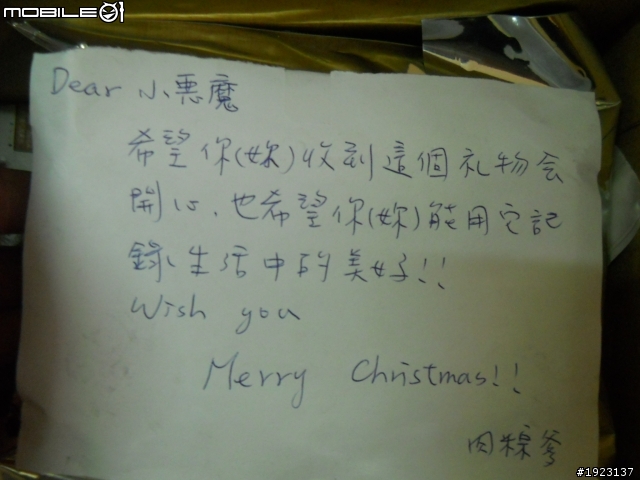 MOBILE01
Dear 小悪魔
希望你(妳)收到這個礼物会
開心，也希望你(妳)能用它記
錄生活中的美好!!
Wish you
Merry Christmas!!
肉粽爹
#1923137